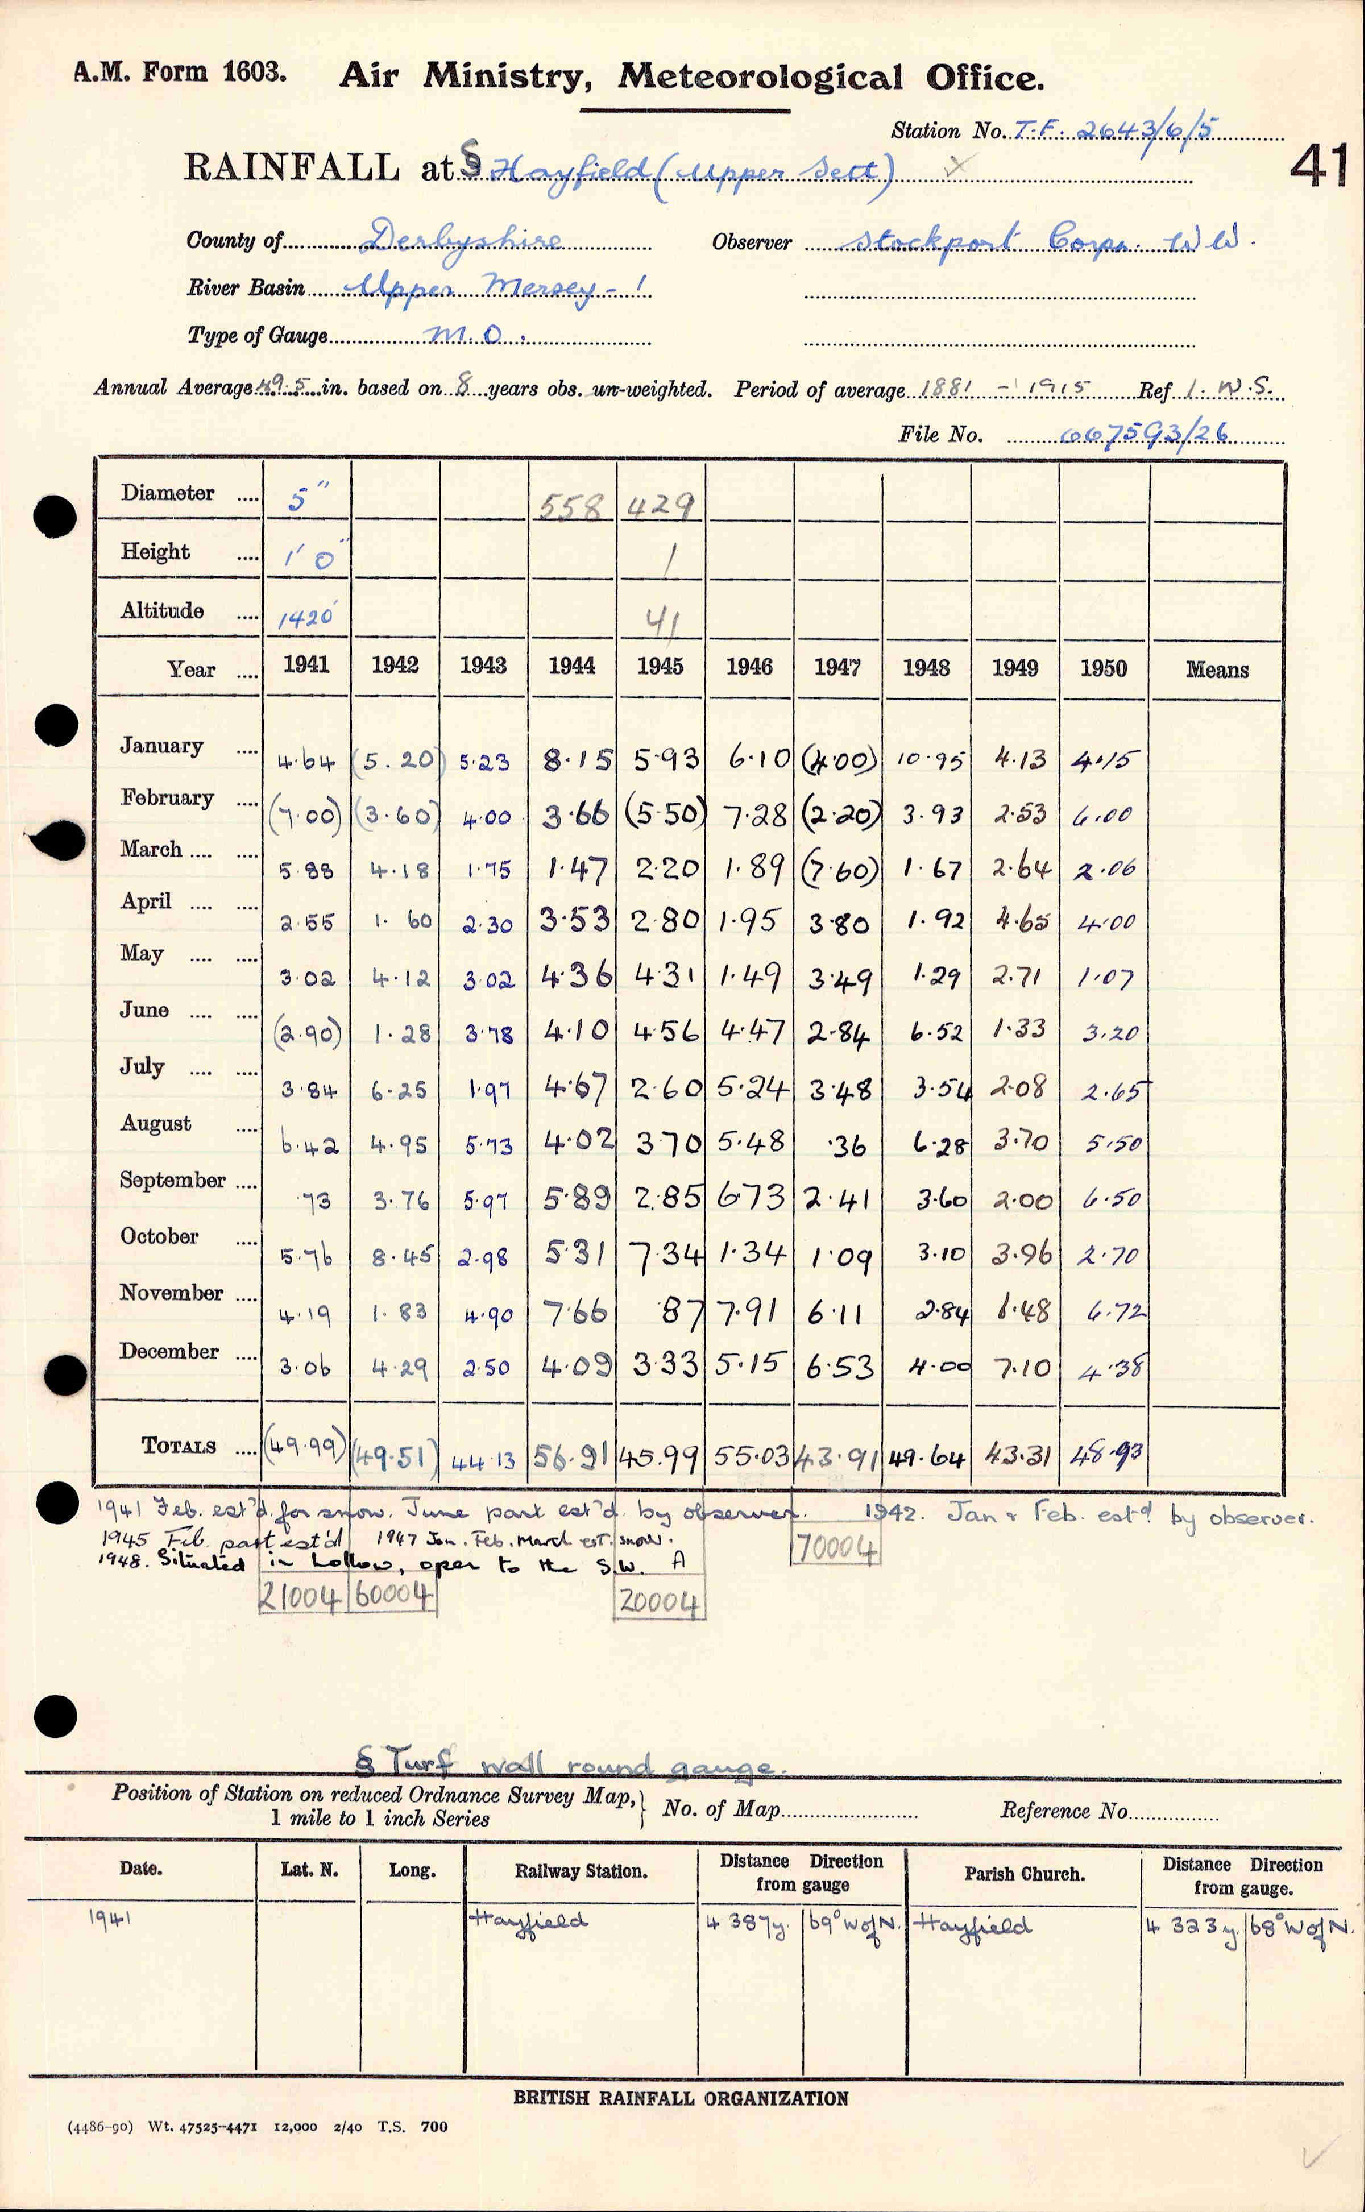 A.M. Form 1603. Air Ministry, Meteorological Office.
Station No. T.F. 2643/6/5
41
RAINFALL at § Hayfield (Upper Sett)
County of Derbyshire Observer Stockport Corpn. W W.
River Basin Upper Mersey - 1
Type of Gauge M.O.
Annual Average 49.5 in. based on 8 years obs. un-weighted. Period of average 1881 - 1915 Ref 1. W.S.
File No. 667593/26
Diameter .... 5" 558 429
Height .... 1' 0" 1
Altitude .... 1420' 41
Year .... 1941 1942 1943 1944 1945 1946 1947 1948 1949 1950 Means
January .... 4.64 (5.20) 5.23 8.15 5.93 6.10 (4.00) 10.95 4.13 4.15
February .... (7.00) (3.60) 4.00 3.66 (5.50) 7.28 (2.20) 3.93 2.53 6.00
March .... .... 5.88 4.18 1.75 1.47 2.20 1.89 (7.60) 1.67 2.64 2.06
April .... .... 2.55 1.60 2.30 3.53 2.80 1.95 3.80 1.92 4.65 4.00
May .... .... 3.02 4.12 3.02 4.36 4.31 1.49 3.49 1.29 2.71 1.07
June .... .... (2.90) 1.28 3.78 4.10 4.56 4.47 2.84 6.52 1.33 3.20
July .... .... 3.84 6.25 1.97 4.67 2.60 5.24 3.48 3.54 2.08 2.65
August .... 6.42 4.95 5.73 4.02 3.70 5.48 .36 6.28 3.70 5.50
September .... .73 3.76 5.97 5.89 2.85 6.73 2.41 3.60 2.00 6.50
October .... 5.76 8.45 2.98 5.31 7.34 1.34 1.09 3.10 3.96 2.70
November .... 4.19 1.83 4.90 7.66 .87 7.91 6.11 2.84 6.48 6.72
December .... 3.06 4.29 2.50 4.09 3.33 5.15 6.53 4.00 7.10 4.38
TOTALS .... (49.99) (49.51) 44.13 56.91 45.99 55.03 43.91 49.64 43.31 48.93
1941 Feb. est'd. for snow. June part est'd. by observer. 1942. Jan & Feb. estd. by observer.
1945 Feb. part est'd 1947 Jan. Feb. March est. snow.
70004
1948. Situated in hollow, open to the S.W. A
21004 60004 20004
§ Turf wall round gauge.
Position of Station on reduced Ordnance Survey Map, } No. of Map Reference No.
1 mile to 1 inch Series
Date. Lat. N. Long. Railway Station. Distance Direction from gauge Parish Church. Distance Direction from gauge.
1941 Hayfield 4 387y. 69° W of N. Hayfield 4 323y. 68° W of N.
BRITISH RAINFALL ORGANIZATION
(4486-90) Wt. 47525-4471 12,000 2/40 T.S. 700